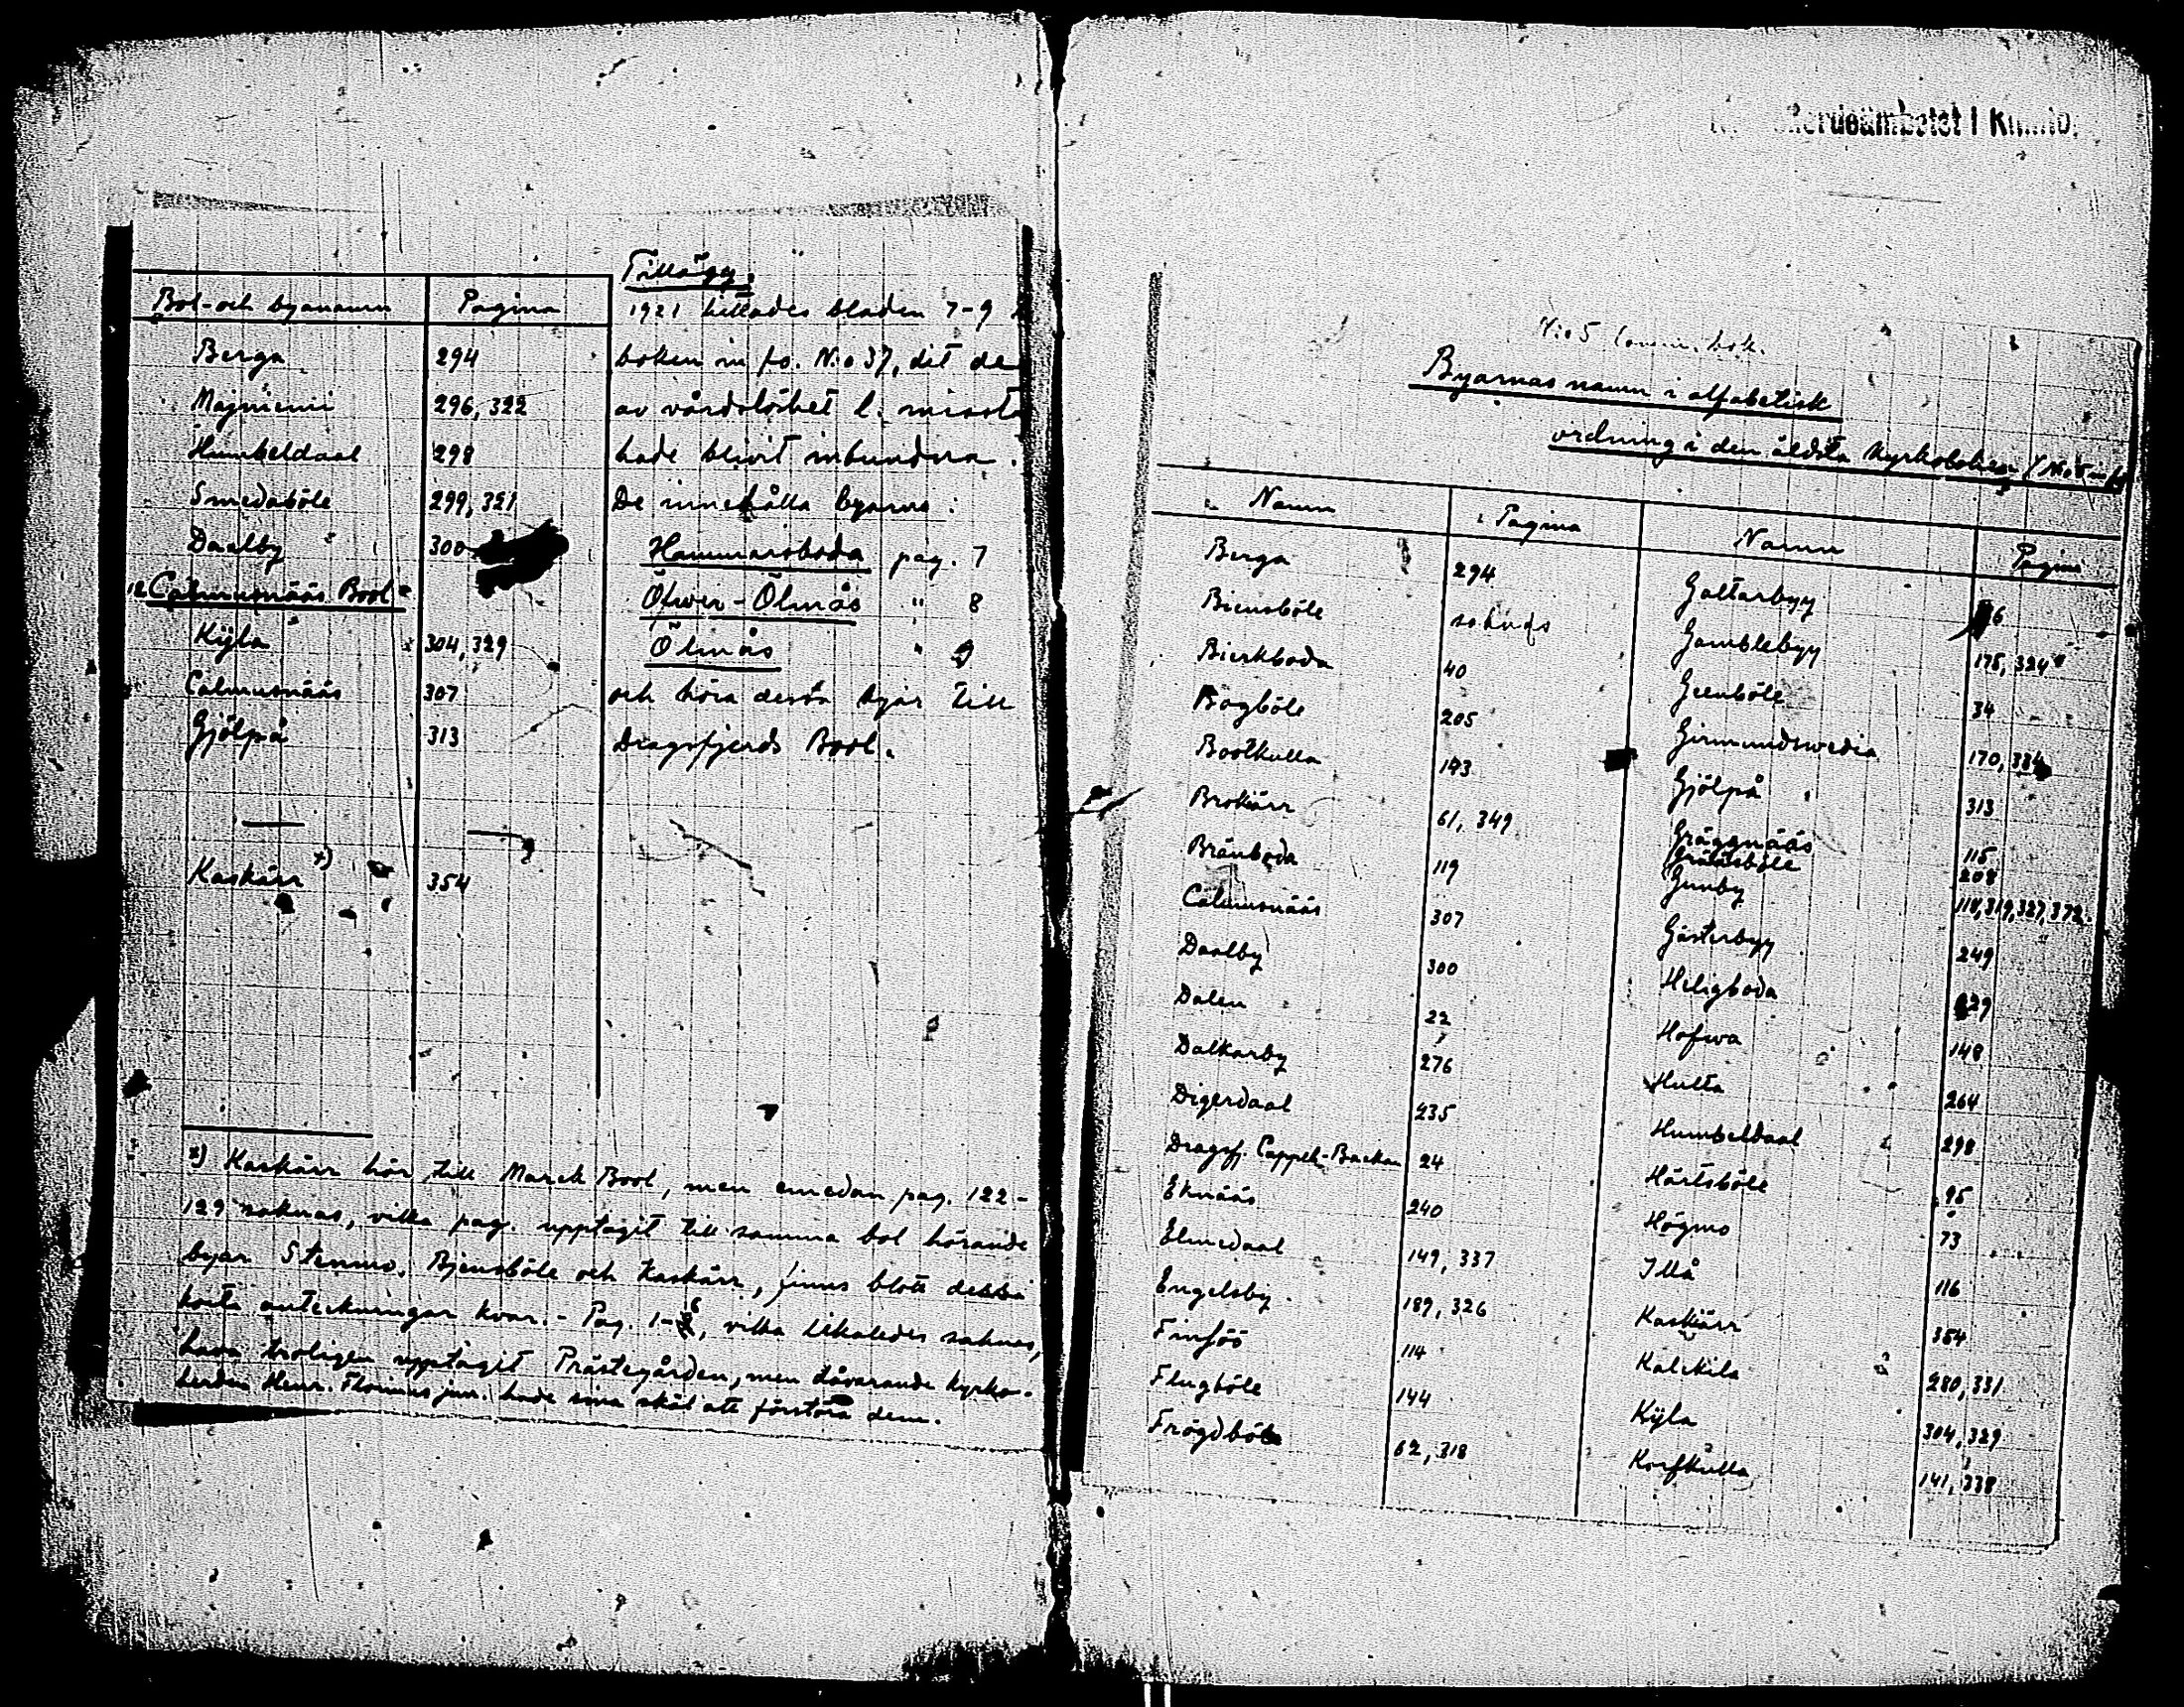 Bol- och byanamn Pagina
Berga 294
Majniemi 296, 322
Humbeldaal 298
Smedaböle 299, 321
Daalby 300
12 Calmusnääs Bool
Kÿla 304, 329
Calmusnääs 307
Gjölpå 313
Kaskärr x) 354
Tillägg.
1921 hittades bladen 7-9
boken in fo. N:o 37, dit de
av vårdslöshet l. misst
hade blivit inbundna.
De innehålla byarna:
Hammarsboda pag. 7
Öfwer-Ölmås " 8
Ölmås " 9
och höra dessa byar till
Dragsfjerds Bool.
x) Kaskärr hör till Marck Bool, men emedan pag. 122-
129 saknas, vilka pag. upptagit till samma bol hörande
byar Stenmo, Bjensböle och Kaskärr, finns blott dessa
korta anteckningar kvar. - Pag. 1-6, vilka likaledes saknas,
hava troligen upptagit Prästegården, men dåvarande kyrko-
herden Henr. Florinus jun. hade sina skäl att förstöra dem.
N:o 5 Comm. bok.
Byarnas namn i alfabetisk
ordning i den äldsta kyrkoboken
Namn Pagina Namn Pagina
Berga 294 Galtarbyy
Biensböle saknas Gamblebyy 175, 324
Bierkboda 40 Geenböle 34
Bogböle 205 Girmundswedia 170, 334
Boolkulla 143 Gjölpå 313
Brokärr 61, 349 Gräggnääs 115
Gräänsböle 208
Bränboda 119 Gunby 118, 319, 327, 372.
Calmusnääs 307 Gästerbyy 249
Daalby 300 Heligboda
Dalen 22 Hofwa 148
Dalkarby 276 Hulta 264
Digerdaal 235 Humbeldaal 298
Dragsfj. Cappell-Backan 24 Härtsböle 95
Eknääs 240 Högmo 73
Elmedaal 149, 337 Illå 116
Engelsby 189, 326 Kaskärr 354
Finföö 114 Kalckila 280, 331
Flugböle 144 Kÿla 304, 329
Frögdböle 62, 318 Korfkulla 141, 338